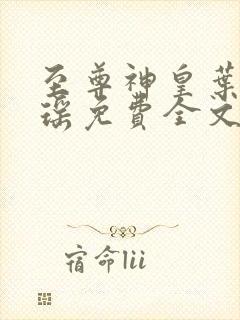 至尊神皇葉
瑶免費全文
宿命lii